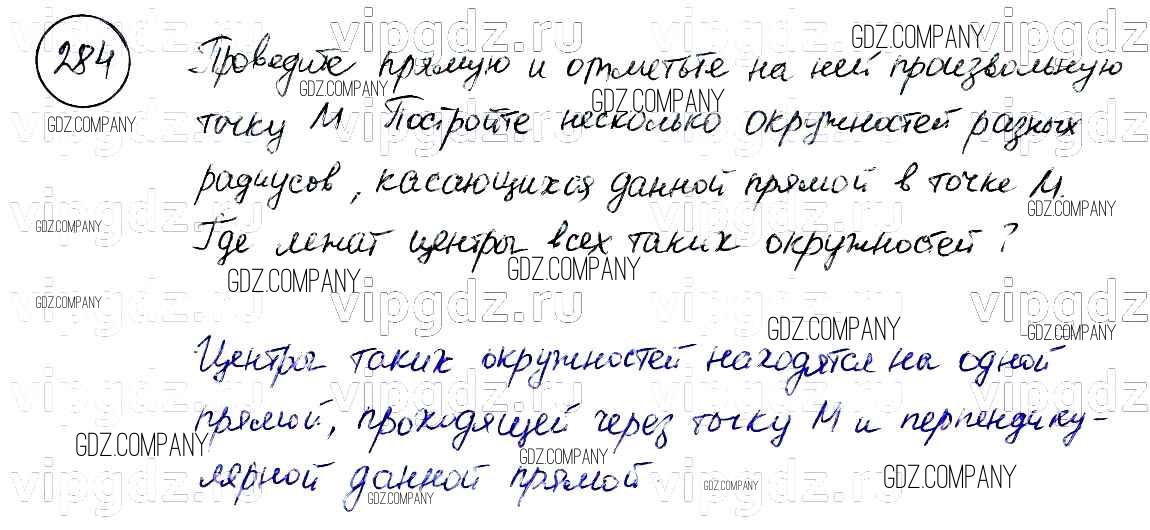 284
Проведите прямую и отметьте на ней произвольную
точку М. Постройте несколько окружностей разных
радиусов, касающихся данной прямой в точке М.
Где лежат центры всех таких окружностей?
Центры таких окружностей находятся на одной
прямой, проходящей через точку М и перпендику-
лярной данной прямой
vipgdz.ru
GDZ.COMPANY